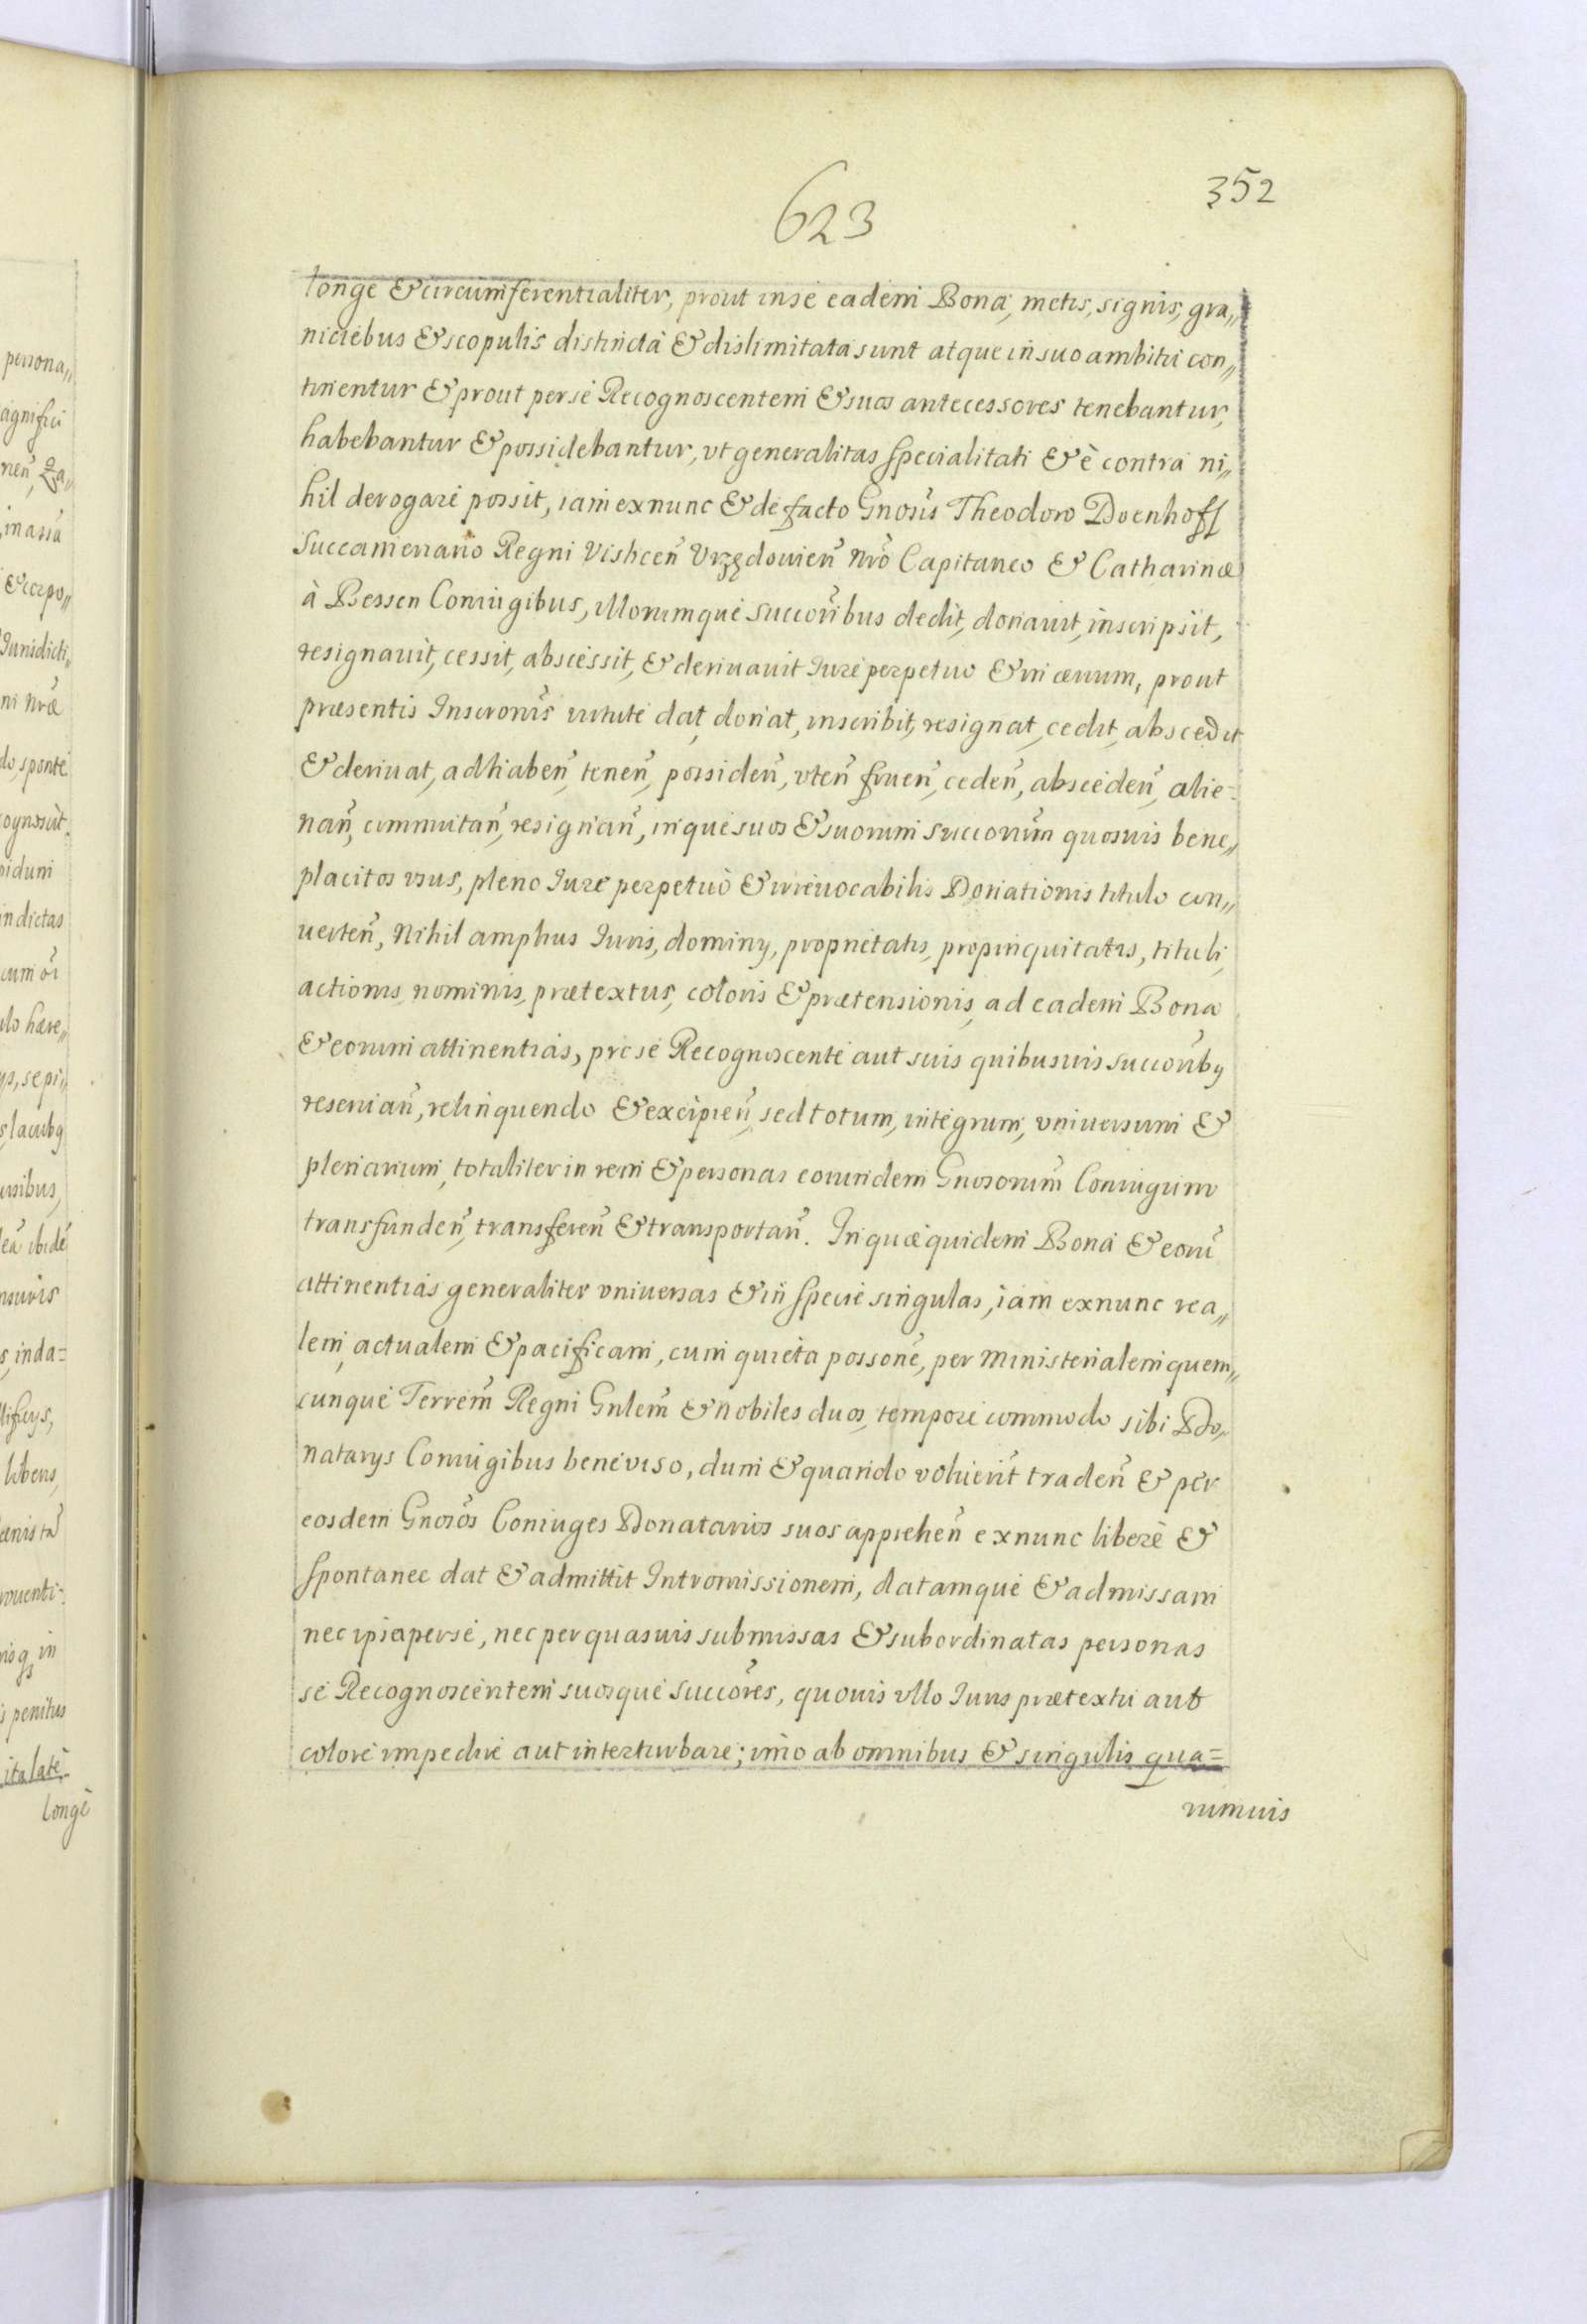 623
352
longe & circumferentialiter, prout in se eadem Bona, metis, signis, gra„
niciebus & scopulis distincta & dislimitata sunt atque in suo ambitu con„
tinentur & prout per se Recognoscentem & suos antecessores tenebantur,
habebantur & possidebantur, vt generalitas specialitati & è contra ni„
hil derogare possit, iam exnunc & de facto Gnosis Theodoro Doenhoff
Succamerario Regni Vislicen̄ Vrzędovien̄ nr̄o Capitaneo & Catharinæ
à Bessen Coniugibus, illorumque succoribus dedit, donauit, inscripsit,
resignauit, cessit, abscessit, & deriuauit Iure perpetuo & in æuum, prout
præsentis Inscronis virtute dat, donat, inscribit, resignat, cedit, abscedit
& deriuat, ad haben̄, tenen̄, possiden̄, vten̄ fruen̄, ceden̄, absceden̄, alie=
nan̄, commutan̄, resignan̄, inque suos & suorum succorum quosuis bene„
placitos vsus, pleno Iure perpetuò & irreuocabilis Donationis titulo con„
uerten̄, Nihil amplius Iuris, dominy, proprietatis, propinquitatis, tituli,
actionis, nominis, prætextus, coloris & prætensionis, ad eadem Bona
& eorum attinentias, pro se Recognoscente aut suis quibusuis succoriby
reseruan̄, relinquendo & excipien̄, sed totum, integrum, vniuersum &
plenarium, totaliter in rem & personas eorundem Gnosorum Coniugum
transfunden̄, transferen̄ & transportan̄. In quæ quidem Bona & eorū
attinentias generaliter vniuersas & in specie singulas, iam exnunc rea„
lem, actualem & pacificam, cum quieta possone, per Ministerialem quem„
cunque Terrem̄ Regni Gnlem̄ & nobiles duos, tempore commodo sibi Do„
natarys Coniugibus beneviso, dum & quando voluerit traden̄ & per
eosdem Gnosos Coniuges Donatarios suos apprehen̄ exnunc liberè &
spontanee dat & admittit Intromissionem, datamque & admissam
nec ipsa per se, nec per quasuis submissas & subordinatas personas
se Recognoscentem suosque succores, quouis vllo Iuris prætextu aut
colore impedire aut interturbare; imo ab omnibus & singulis qua=
rumuis
persona„
agnifici
in assā
Iurisdicti„
ni nræ
do, sponte
indictas
ulo hære„
lacuby
s, inda=
libens,
s penitus
ita late
longè